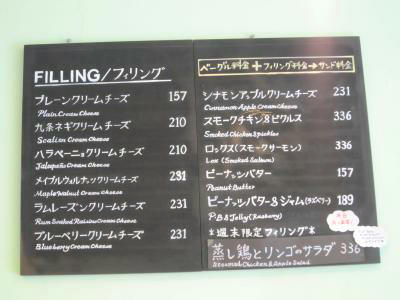 FILLING/フィリング
プレーンクリームチーズ 157
Plain Cream Cheese
九条ネギクリームチーズ 210
Scalion Cream Cheese
ハラペーニョクリームチーズ 210
Jalapeño Cream Cheese
メイプルウォルナッツクリームチーズ 231
Maple Walnut Cream Cheese
ラムレーズンクリームチーズ 231
Rum Soaked Raisins Cream Cheese
ブルーベリークリームチーズ 231
Blueberry Cream Cheese
ベーグル料金 + フィリング料金 → サンド料金
シナモンアップルクリームチーズ 231
Cinnamon Apple Cream Cheese
スモークチキン&ピクルス 336
Smoked Chicken & pickles
ロックス(スモークサーモン) 336
Lox (Smoked Salmon)
ピーナッツバター 157
Peanut Butter
ピーナッツバター&ジャム(ラズベリー) 189
P.B & Jelly (Rasberry)
*週末限定フィリング*
蒸し鶏とリンゴのサラダ 336
Steamed Chicken & Apple Salad